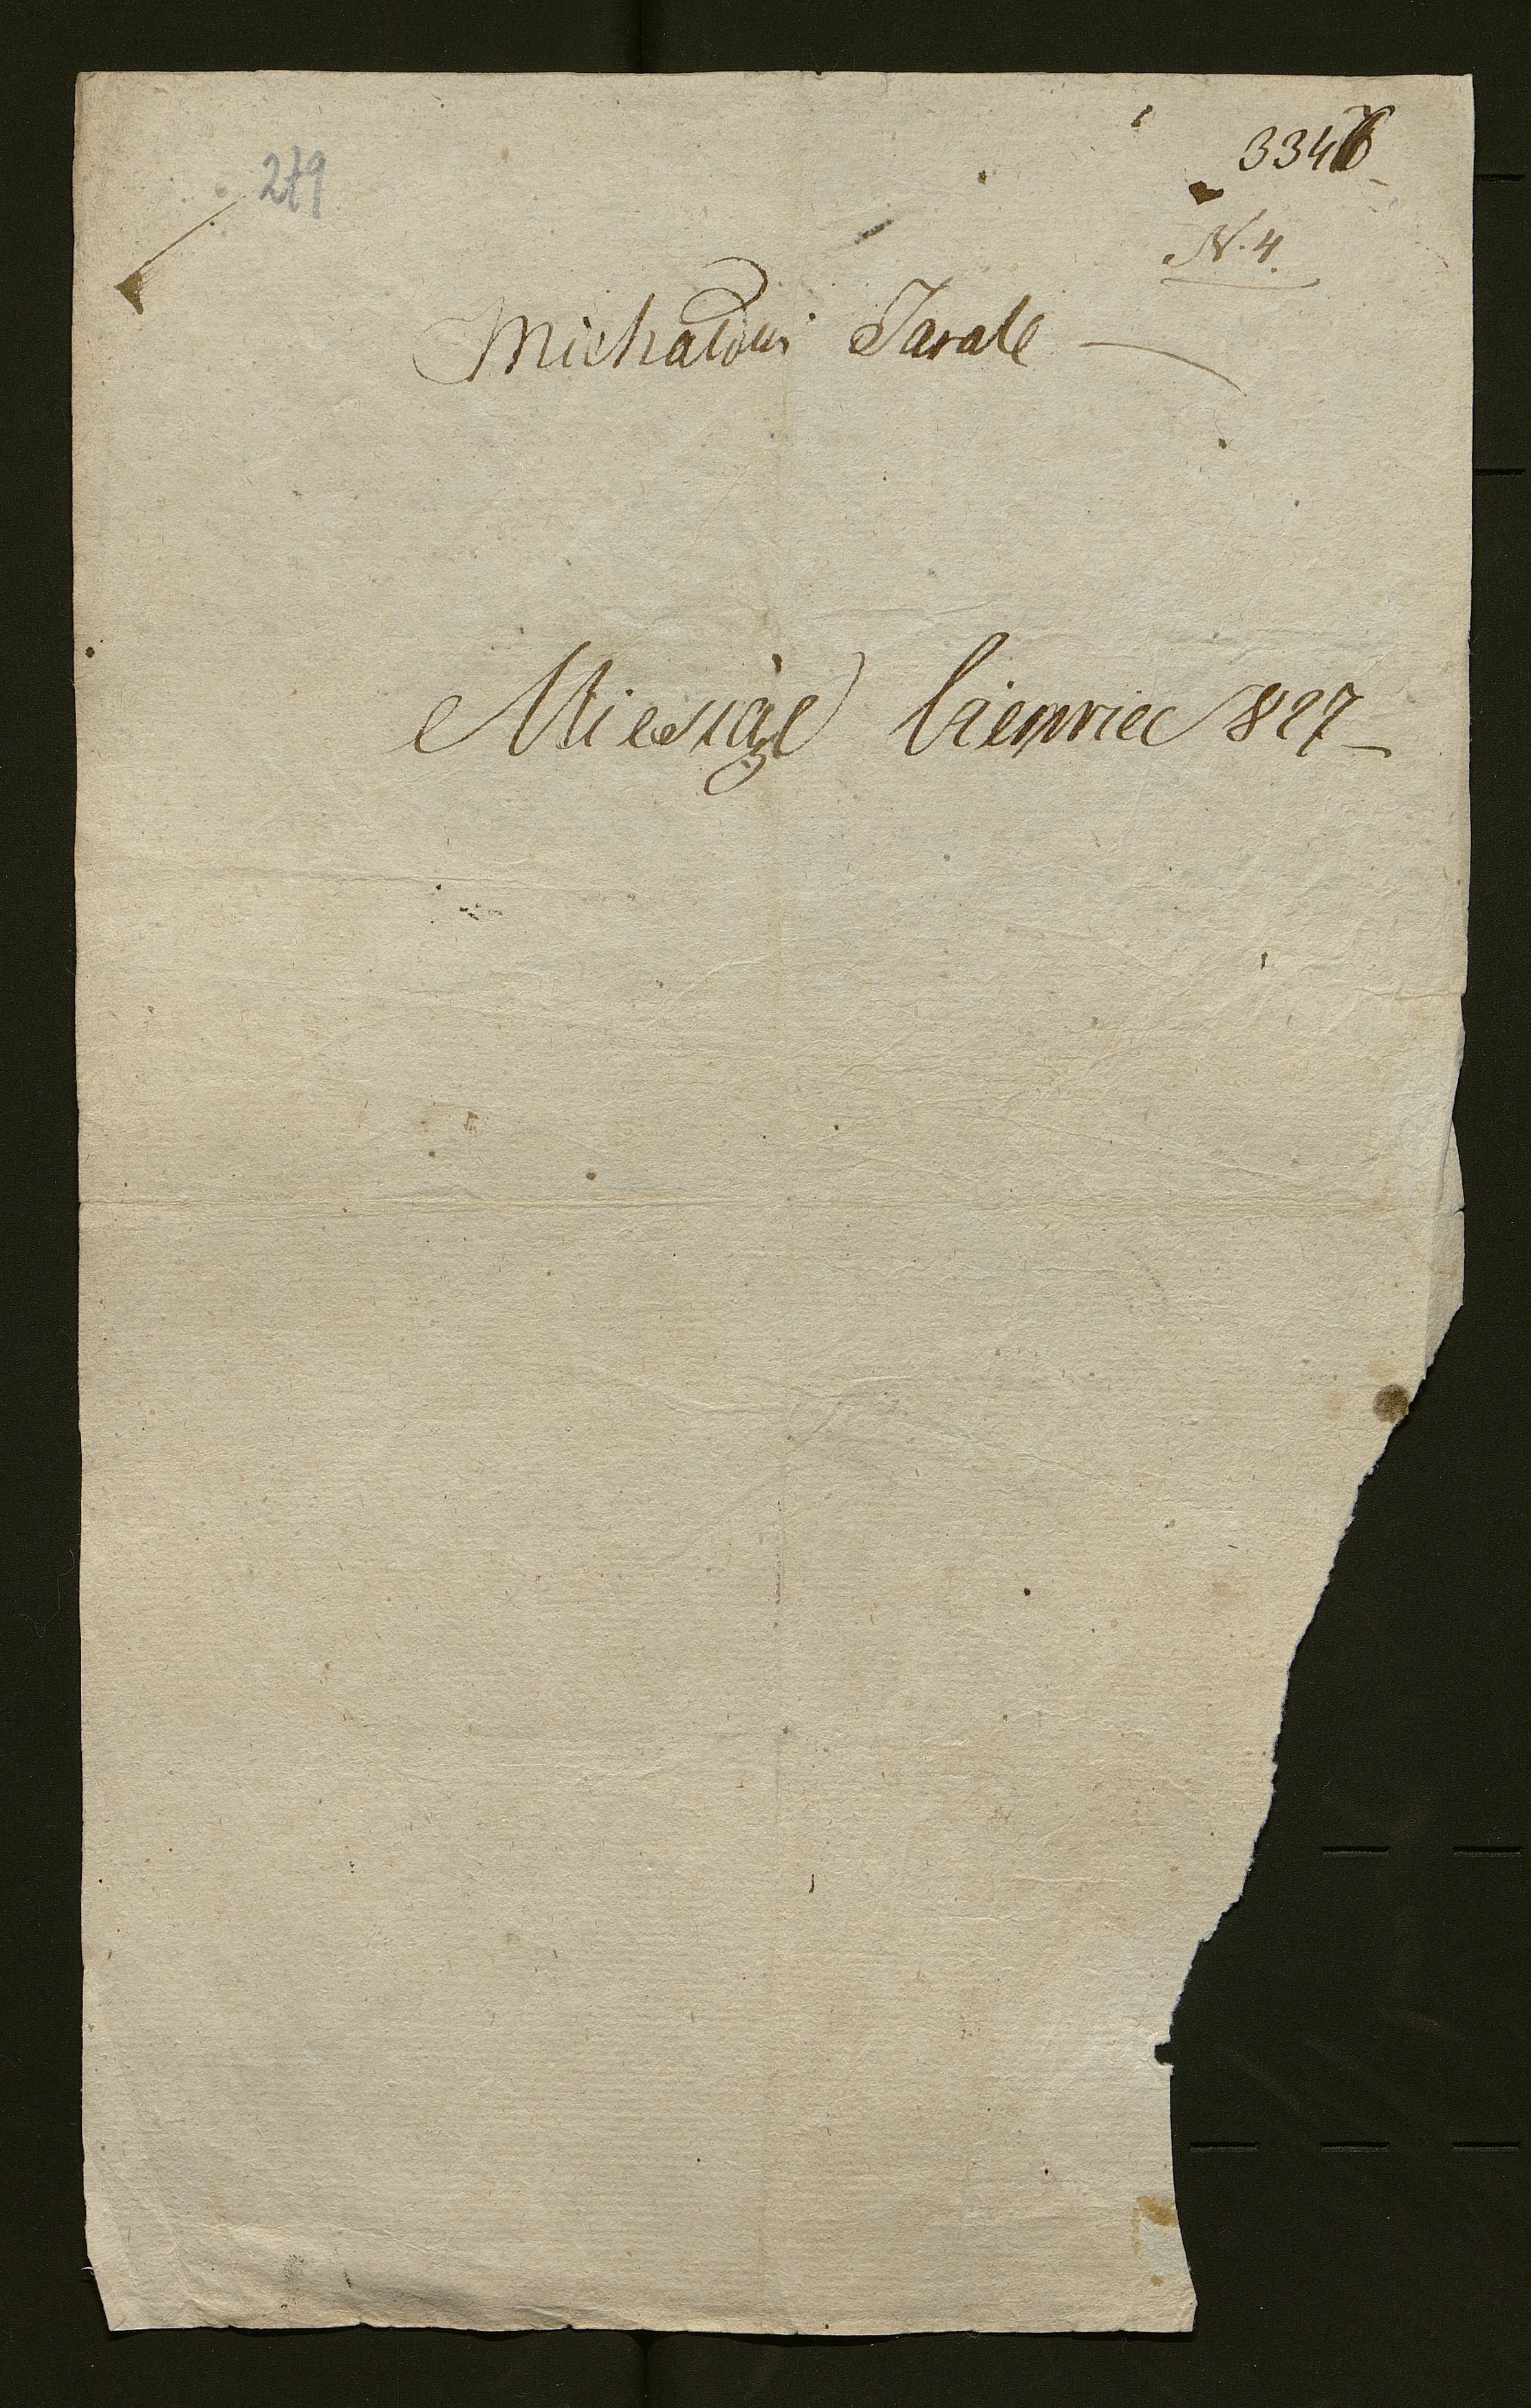 279
3346
N. 4.
Michałowi Tarale
Miesiąc Czerwiec 1827